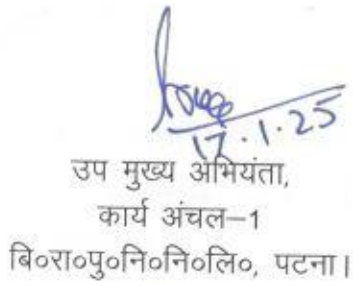 17.1.25
उप मुख्य अभियंता,
कार्य अंचल–1
बि०रा०पु०नि०नि०लि०, पटना।